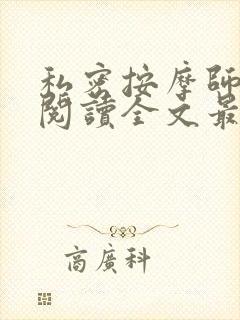 私密按摩師
閱讀全文最
商廣科